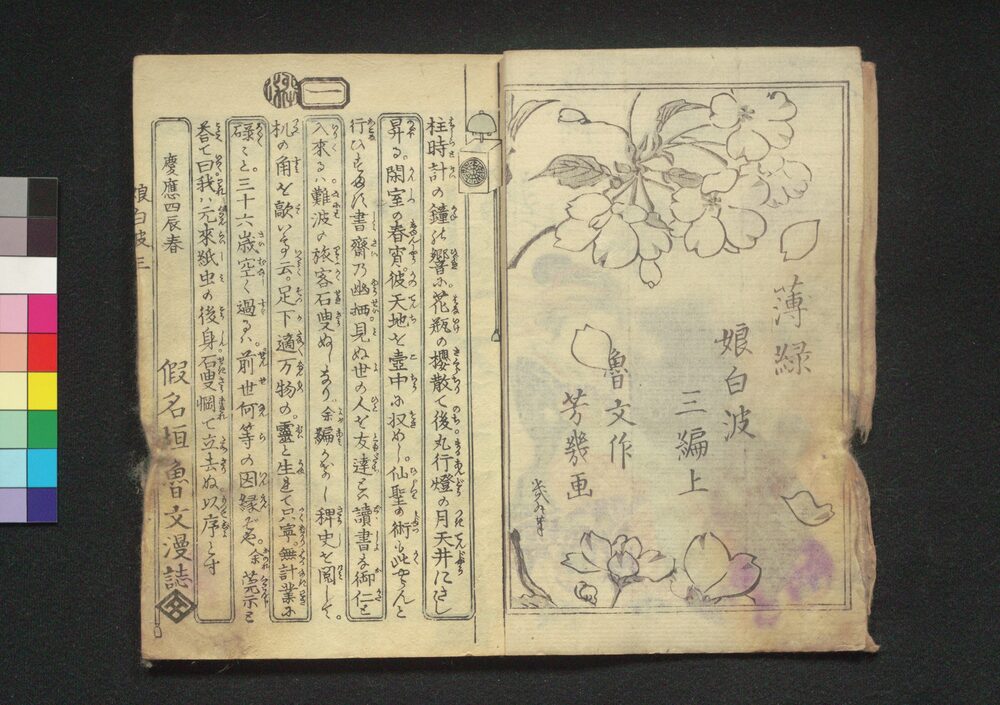 薄緑
娘白波
三編上
魯文作
芳幾画
一
柱時計の鐘の響に花瓶の櫻散て後丸行燈の月天井にさし
昇る。閑室の春宵彼天地を壺中に収めし。仙聖の術も
行ひ書齋乃幽栖見ぬ世の人を友達と讀書
入來るハ難波の旅客石叟ぬしなり余編かけし稗史を閲して。
机の角を敲いて云。足下適万物の靈と生れて只寧無計業に
碌々と。三十六歳空く過るハ。前世何等の因縁ぞや余莞尓と
荅て曰我ハ元來紙虫の後身石叟惘て立去ぬ以序とす
慶應四辰春
假名垣魯文漫誌
娘白波三